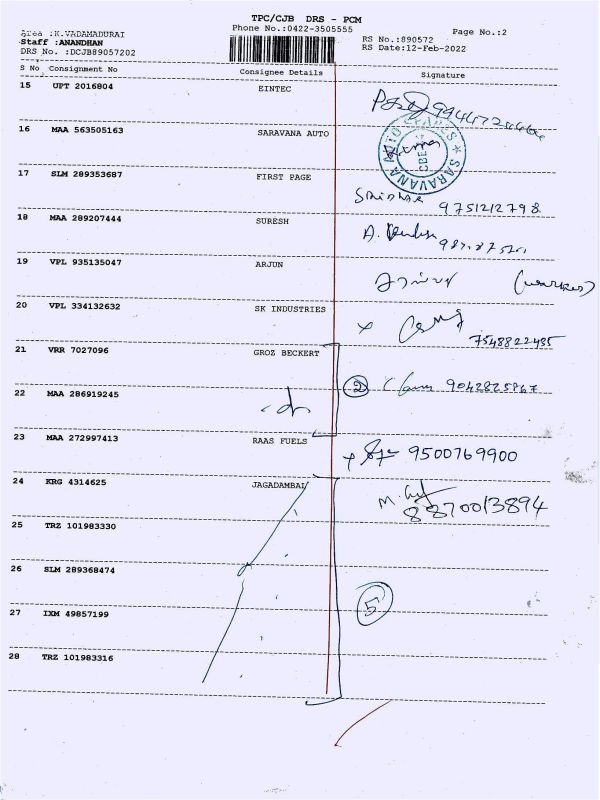 TPC/CJB DRS - PCM
Phone No.:0422-3505555
Page No.:2
Area :K.VADAMADURAI
Staff :ANANDHAN
DRS No. :DCJB89057202
RS No.:890572
RS Date:12-Feb-2022
S No Consignment No Consignee Details Signature
15 UPT 2016804 EINTEC
16 MAA 563505163 SARAVANA AUTO
SARAVANA AUTO
17 SLM 289353687 FIRST PAGE
9751212798
18 MAA 289207444 SURESH
A.
19 VPL 935135047 ARJUN
20 VPL 334132632 SK INDUSTRIES
x
7548822485
21 VRR 7027096 GROZ BECKERT
2 9042825867
22 MAA 286919245
23 MAA 272997413 RAAS FUELS
x 9500769900
24 KRG 4314625 JAGADAMBAL
M.
8870013894
25 TRZ 101983330
26 SLM 289368474
27 IXM 49857199
5
28 TRZ 101983316